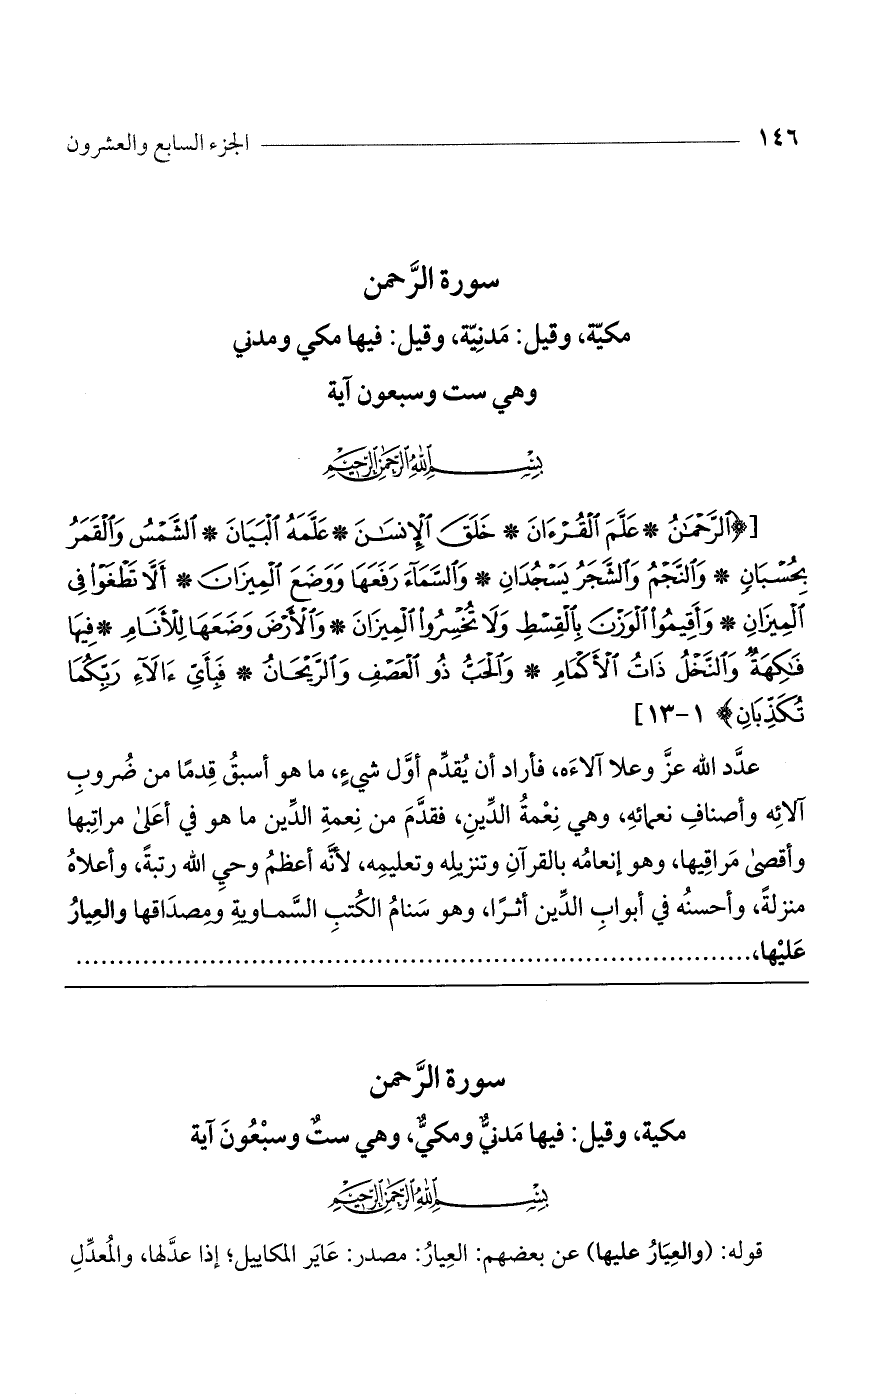 ١٤٦ الجزء السابع والعشرون
سورة الرَّحمن
مكيّة، وقيل: مَدنِيّة، وقيل: فيها مكي ومدني
وهي ست وسبعون آية
بِسْمِ ٱللَّهِ ٱلرَّحْمَٰنِ ٱلرَّحِيمِ
[﴿ٱلرَّحْمَٰنُ * عَلَّمَ ٱلْقُرْءَانَ * خَلَقَ ٱلْإِنسَٰنَ * عَلَّمَهُ ٱلْبَيَانَ * ٱلشَّمْسُ وَٱلْقَمَرُ
بِحُسْبَانٍ * وَٱلنَّجْمُ وَٱلشَّجَرُ يَسْجُدَانِ * وَٱلسَّمَآءَ رَفَعَهَا وَوَضَعَ ٱلْمِيزَانَ * أَلَّا تَطْغَوْا۟ فِى
ٱلْمِيزَانِ * وَأَقِيمُوا۟ ٱلْوَزْنَ بِٱلْقِسْطِ وَلَا تُخْسِرُوا۟ ٱلْمِيزَانَ * وَٱلْأَرْضَ وَضَعَهَا لِلْأَنَامِ * فِيهَا
فَٰكِهَةٌ وَٱلنَّخْلُ ذَاتُ ٱلْأَكْمَامِ * وَٱلْحَبُّ ذُو ٱلْعَصْفِ وَٱلرَّيْحَانُ * فَبِأَىِّ ءَالَآءِ رَبِّكُمَا
تُكَذِّبَانِ﴾ ١-١٣]
عدَّد الله عزَّ وعلا آلاءَه، فأراد أن يُقدِّم أوَّل شيءٍ، ما هو أسبقُ قِدمًا من ضُروبِ
آلائِه وأصنافِ نعمائهِ، وهي نِعْمةُ الدِّينِ، فقدَّمَ من نِعمةِ الدِّين ما هو في أعَلىٰ مراتِبها
وأقصىٰ مَراقِيها، وهو إنعامُه بالقرآنِ وتنزيلِه وتعليمِه، لأنَّه أعظمُ وحيِ الله رتبةً، وأعلاهُ
منزلةً، وأحسنُه في أبوابِ الدِّين أثرًا، وهو سَنامُ الكتبِ السَّماويةِ ومِصدَاقها والعِيارُ
عَليْها،..........................................................................
سورة الرَّحمن
مكية، وقيل: فيها مَدنيٌّ ومكيٌّ، وهي ستٌ وسبْعُونَ آية
بِسْمِ ٱللَّهِ ٱلرَّحْمَٰنِ ٱلرَّحِيمِ
قوله: (والعِيَارُ عليها) عن بعضهم: العِيارُ: مصدر: عَايَر المكاييل؛ إذا عدَّلها، والمُعدِّلِ